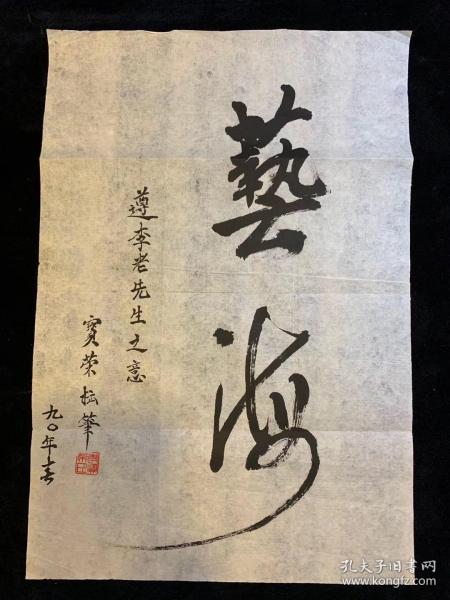 藝海
遵李老先生之意
寳荣拙筆
九〇年春
孔夫子旧书网
www.kongfz.com